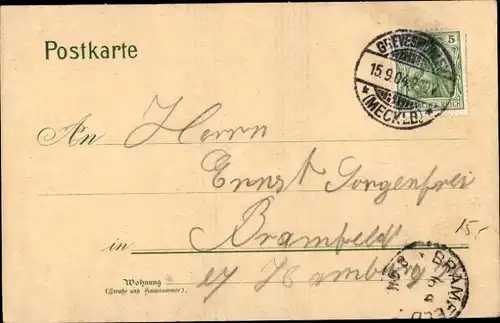 Postkarte
5
15.9.04
(MECKLB)
An Herrn
Ernst Sorgenfrei
15,-
in Bramfeld
b/ Hamburg
BRAMFELD
Wohnung
(Straße und Hausnummer).